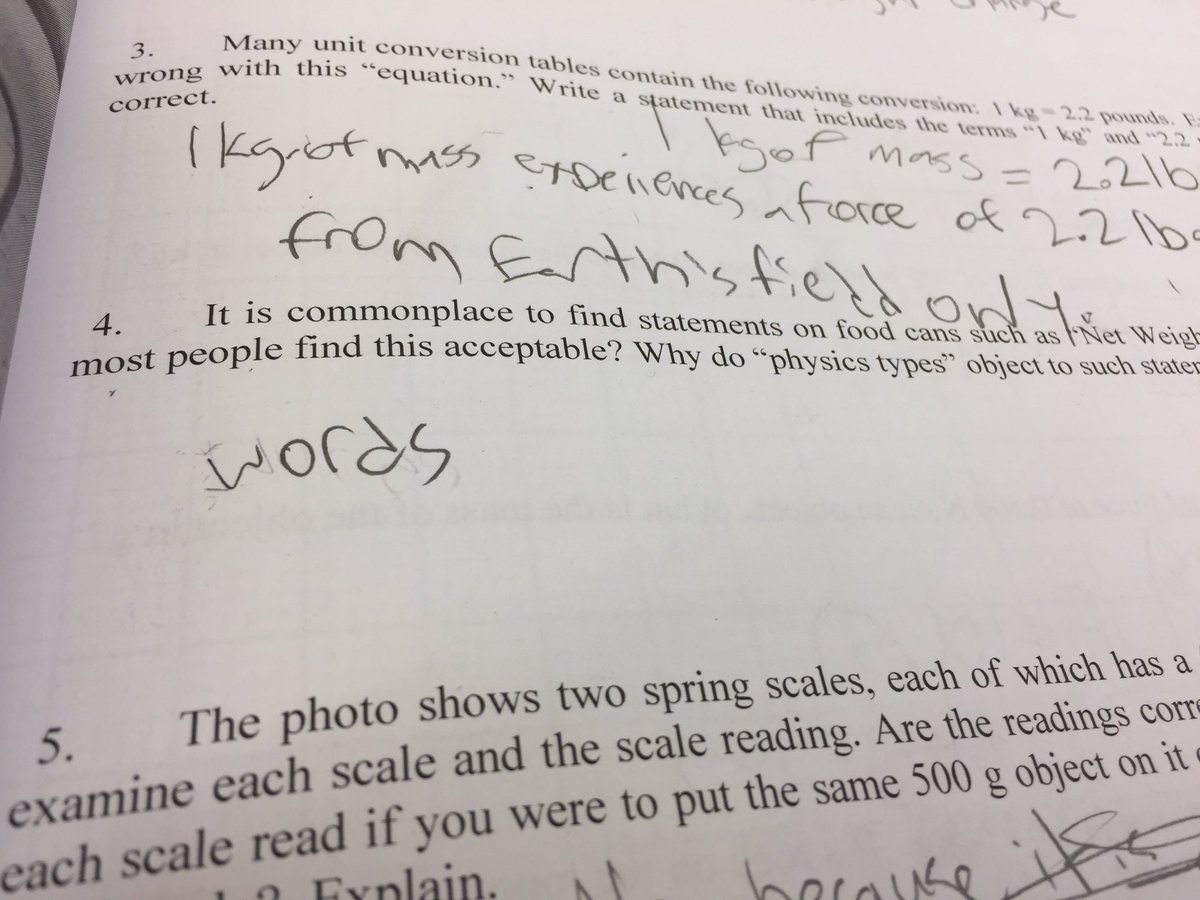 change
3. Many unit conversion tables contain the following conversion: 1 kg = 2.2 pounds.
wrong with this “equation.” Write a statement that includes the terms “1 kg” and “2.2
correct.
1 kg of mass = 2.2lb
1 kg of mass experiences a force of 2.2 lbs
from Earth's field only.
4. It is commonplace to find statements on food cans such as “Net Weigh
most people find this acceptable? Why do “physics types” object to such statem
words
5. The photo shows two spring scales, each of which has a
examine each scale and the scale reading. Are the readings corre
each scale read if you were to put the same 500 g object on it
Explain.
because it is